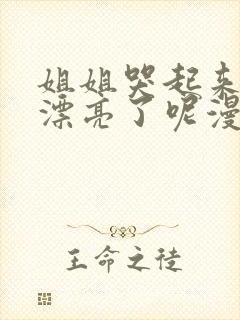 姐姐哭起来
漂亮了呢漫
王命之徒